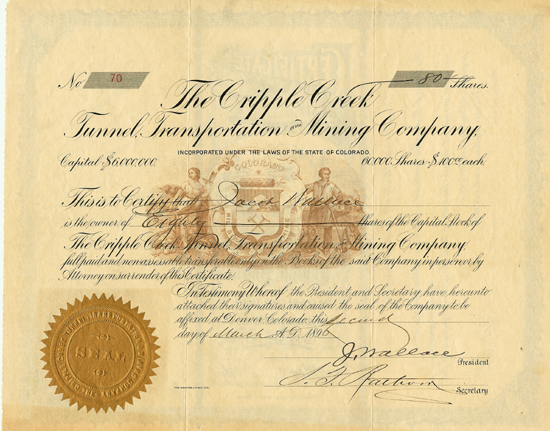 No 70
80 Shares.
The Cripple Creek
Tunnel, Transportation and Mining Company,
INCORPORATED UNDER THE LAWS OF THE STATE OF COLORADO.
Capital $6,000,000.
60,000 Shares $100.00 each.
COLORADO
This is to Certify that Jacob Wallace
is the owner of Eighty Shares of the Capital Stock of
The Cripple Creek Tunnel, Transportation and Mining Company,
full paid and non assessable transferable only on the Books of the said Company in person or by
Attorney on surrender of this Certificate.
In Testimony Whereof the President and Secretary have hereunto
attached their signatures and caused the seal of the Company to be
affixed at Denver Colorado, this Second
day of March A.D. 1896
SEAL
J. Wallace
President
Secretary